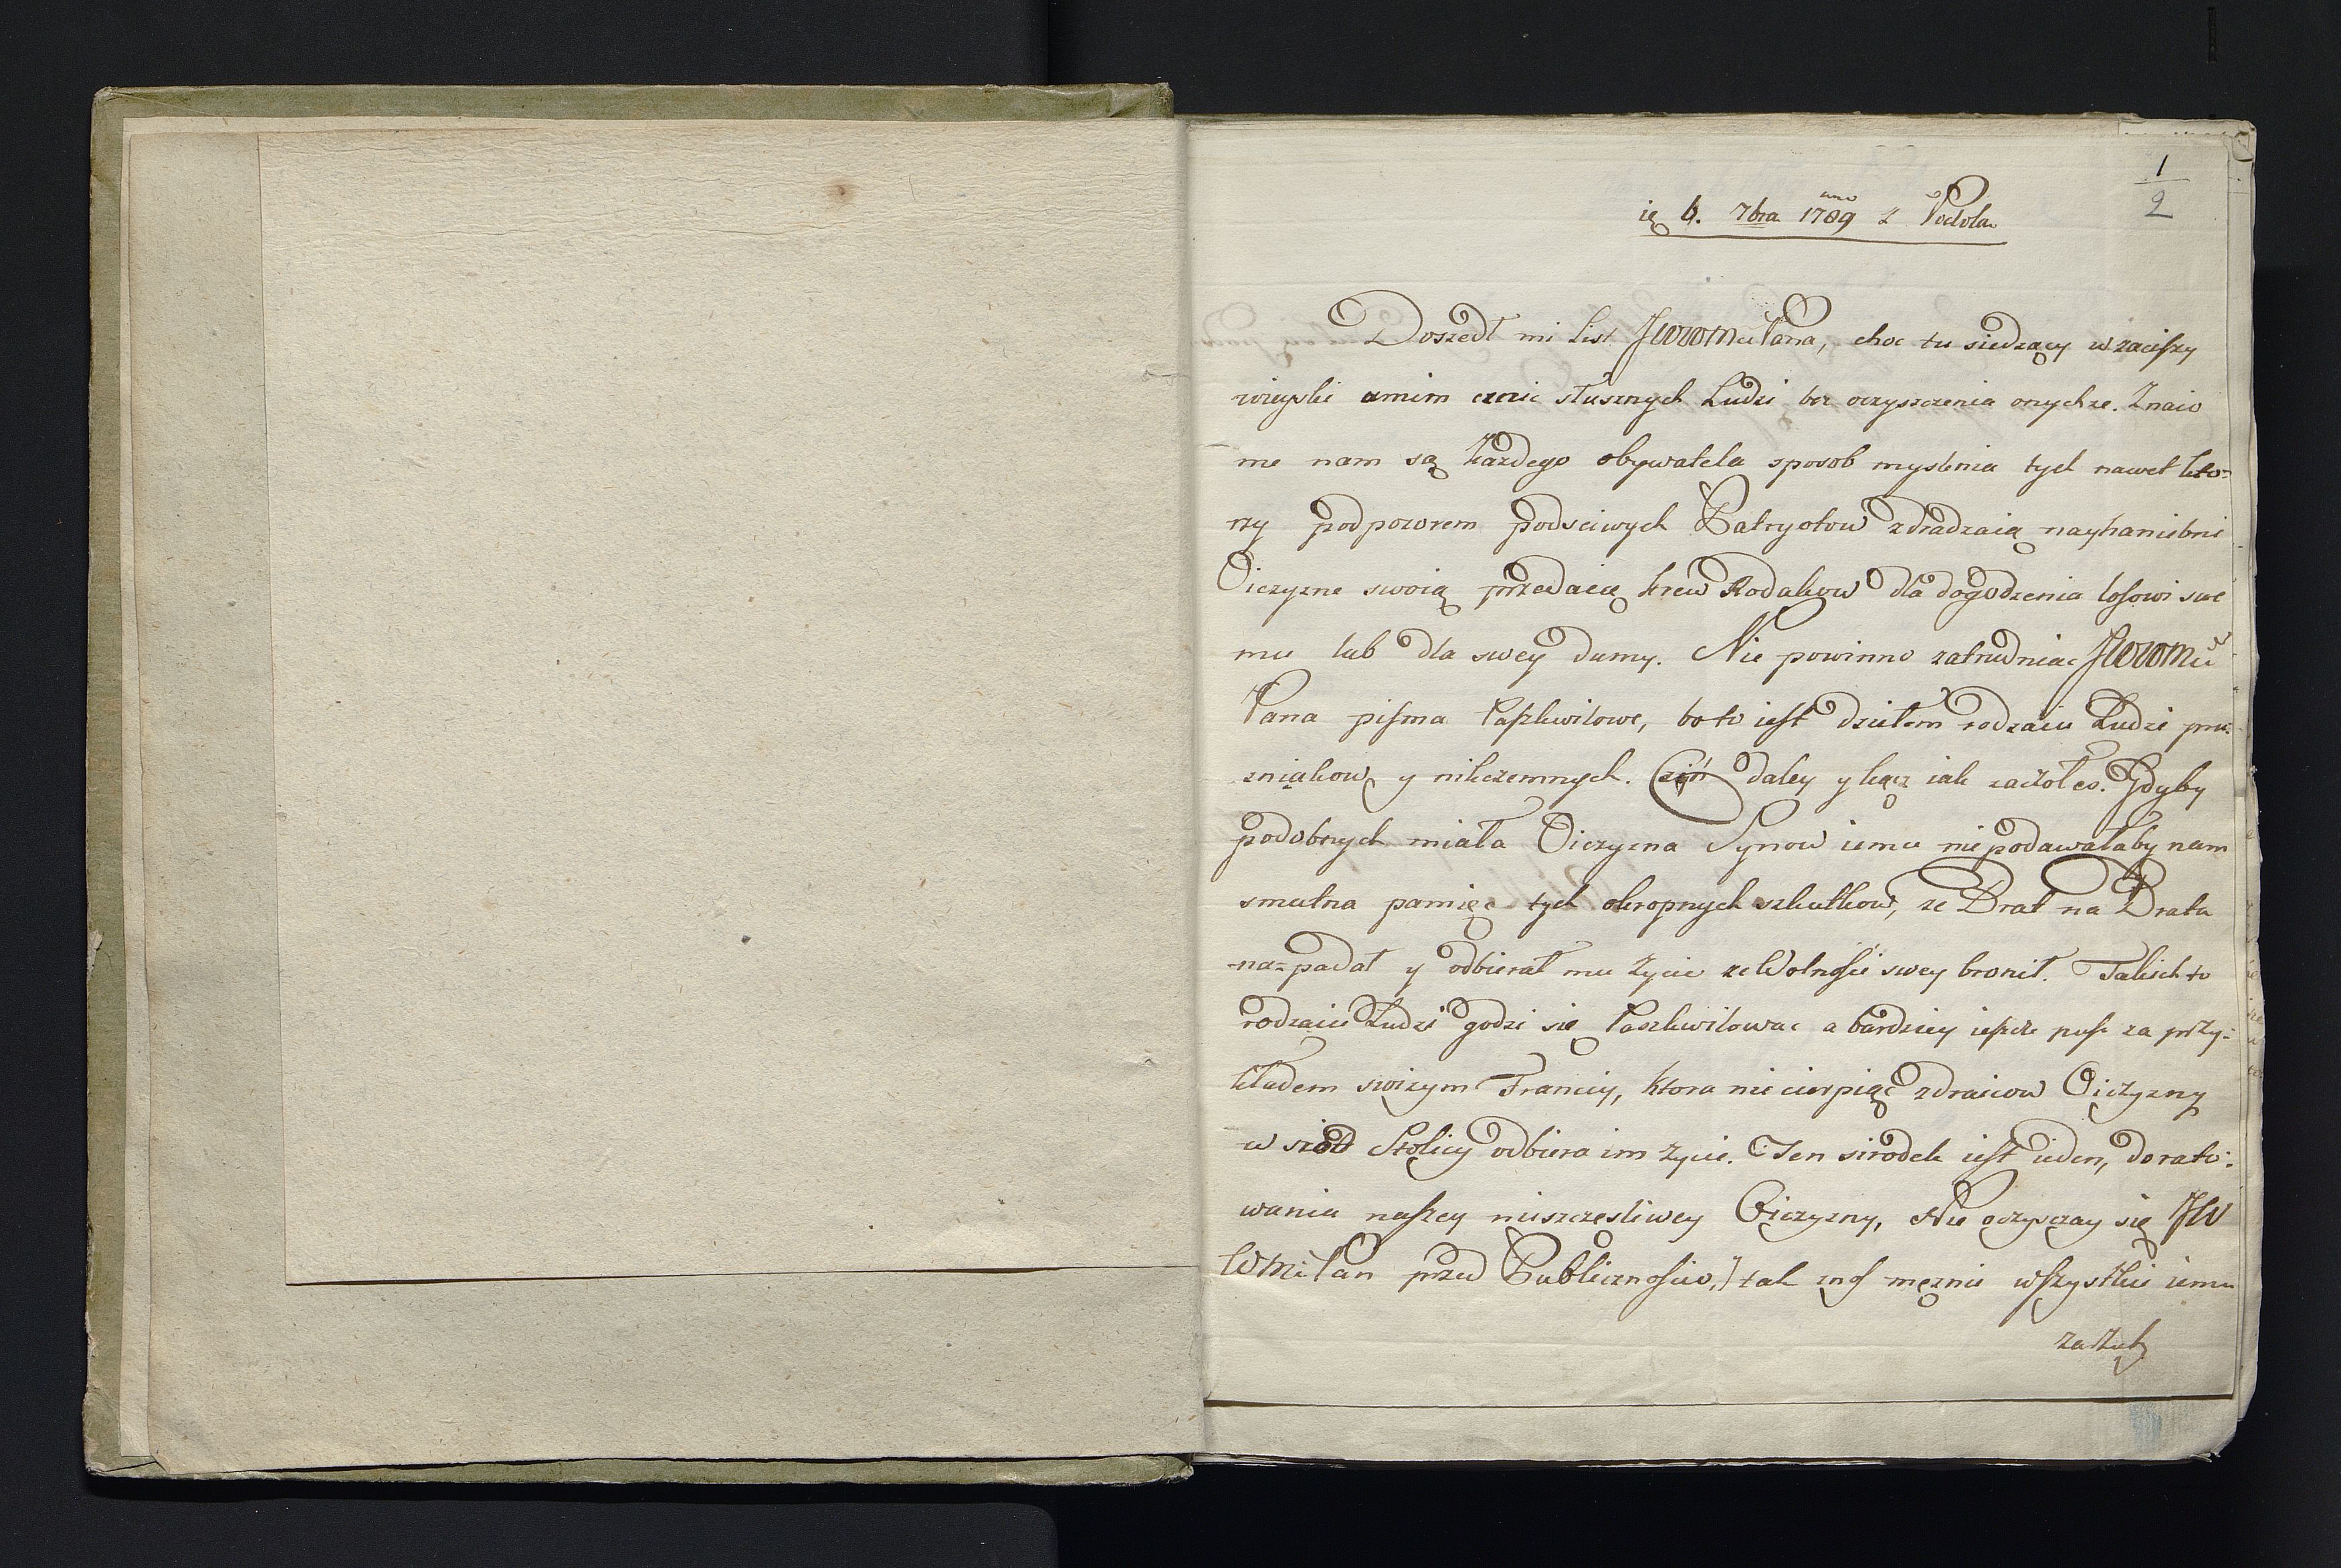 1
2
ię 6. 7bra 1789 z Podola
Doszedł mi list JWWMu Pana, choc tu siedzący w zaciszy
wieyski umim cznic słusznych Ludzi bez oczyszczenia onychze. Znaio
me nam są każdego obywatela sposob myslenia tych nawet kto-
rzy pod pozorem podsciwych Patryotow zdradzaią nayhaniebni
Oiczyzne swoią przedaią krew Rodakow dla dogodzenia losowi swe
mu lub dla swey dumy. Nie powinno zatrudniac JWWMu
Pana pisma Paszkwilowe, bo to iest dziełem rodzaiu Ludzi
zniakow y nikczemnych. Czyń daley y kącz iak zacżołes. Gdyby
podobnych miała Oiczyzna Synow iemu nie podawałaby nam
smutna pamięc tych okropnych szkutkow, ze Brat na Brata
na-padał y odbierał mu życie ze Wolnosci swey bronił. Takich to
rodzaiu Ludzi godzi się Paszkwilowac a bardziey ieszcze za przy-
kładem swizym Franciy, ktora nie cierpiąc zdraicow Oiczyzny
w srod Stolicy odbiera im życie. Ten sirodek iest ieden, do rato-
wania naszey nieszczesliwey Oiczyzny, Nie oczysczay się JW
WMci Pan przed Publicznoscio, tak znos męznie wszystkie iemu